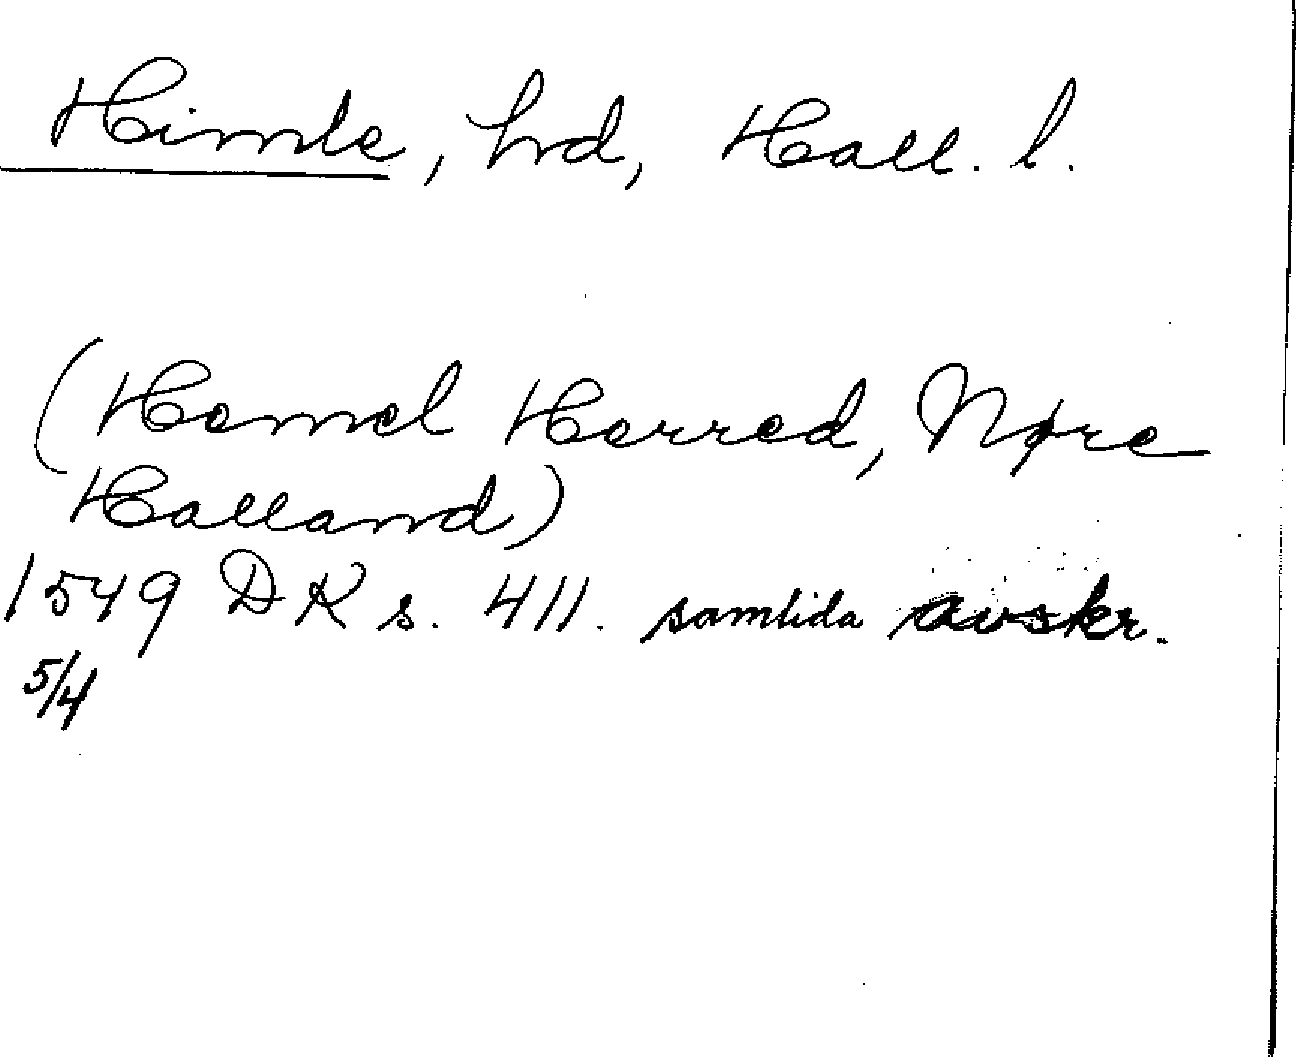 Himle, hrd, Hall. l.
(Hemel Herred, Nørre
Halland)
1549 DK s. 411. samtida avskr.
5/4